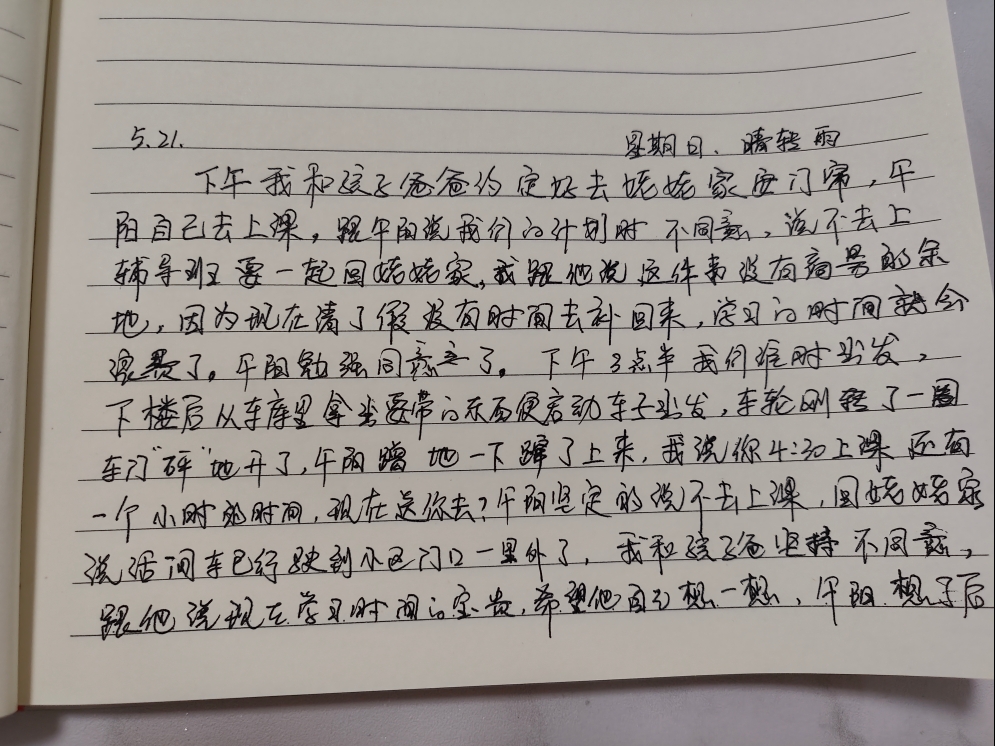 5.21. 星期日、晴转雨
下午我和孩子爸爸约定好去姥姥家安门帘，午
阳自己去上课，跟午阳说我们的计划时不同意，说不去上
辅导班要一起回姥姥家，我跟他说这件事没有商量的余
地，因为现在请了假没有时间去补回来，学习的时间就会
浪费了。午阳勉强同意了。下午3点半我们准时出发，
下楼后从车库里拿出要带的东西便启动车子出发，车轮刚转了一圈
车门"砰"地开了，午阳蹭地一下蹿了上来，我说你4:30上课还有
一个小时的时间，现在送你去？午阳坚定的说不去上课，回姥姥家
说话间车已行驶到小区门口一里外了，我和孩子爸坚持不同意，
跟他说现在学习时间的宝贵，希望他自己想一想，午阳想了后